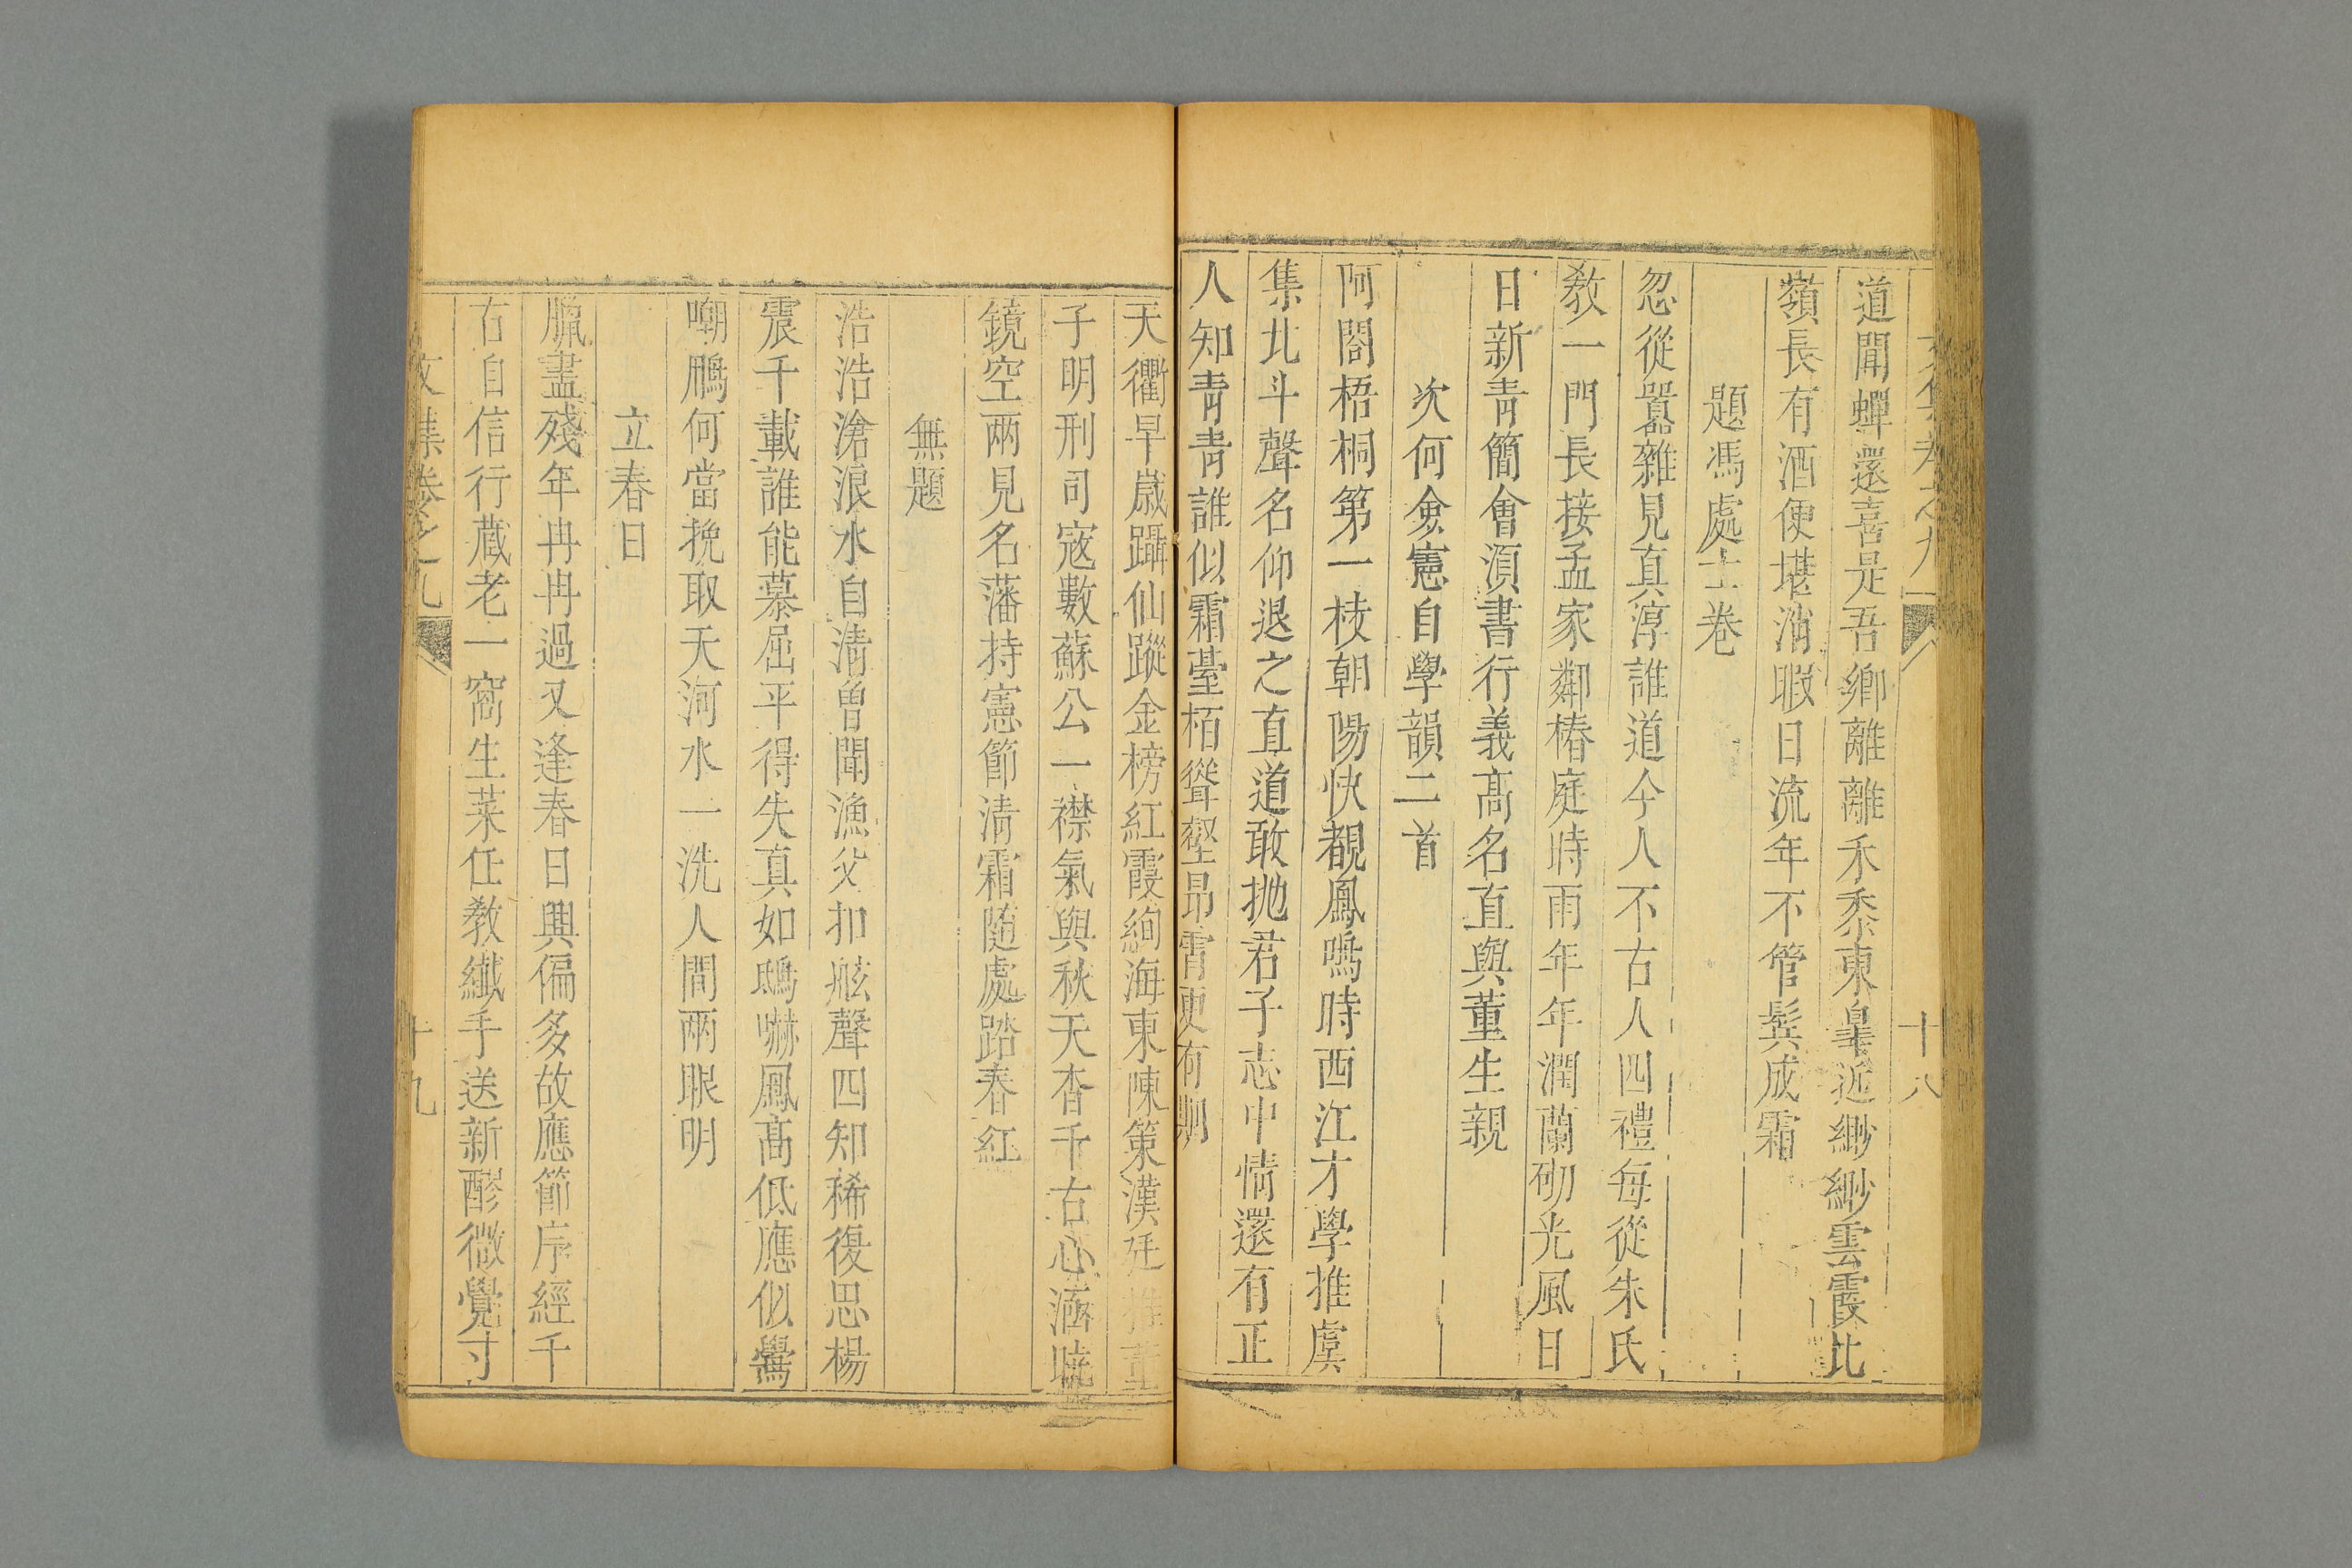 文集卷之九 十八
道聞蟬還喜是吾鄉離離禾黍東皐近緲緲雲霞比
嶺長有酒便堪消暇日流年不管鬂成霜
題馮處士卷
忽從囂雜見真淳誰道今人不古人四禮每從朱氏
敎一門長接孟家鄰椿庭時雨年年潤蘭砌光風日
日新青簡會湏書行義髙名直與董生親
次何僉憲自學韻二首
阿閣梧桐第一枝朝陽快覩鳳鳴時西江才學推虞
集北斗聲名仰退之直道敢拋君子志中情還有正
人知青青誰似霜䑓栢聳壑昻霄更有期
天衢早歲躡仙蹤金榜紅霞絢海東陳策漢廷推董
子明刑司寇數蘇公一襟氣與秋天杳千古心涵曉
鏡空兩見名藩持憲節清霜随處踏春紅
無題
浩浩滄浪水自清曽聞漁父扣舷聲四知稀復思楊
震千載誰能慕屈平得失真如鴟嚇鳳髙低應似鷽
嘲鵬何當挽取天河水一洗人間兩眼明
立春日
臘盡殘年冉冉過又逢春日興偏多故應節序經千
古自信行蔵老一窩生菜任敎纖手送新醪微覺寸
文集卷之九 十九